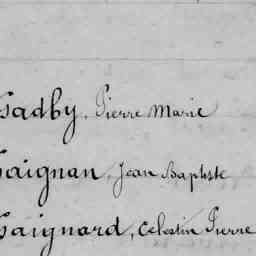 Gadby, Pierre Marie
Gaignan, Jean Baptiste
Gaignard, Célestin Pierre